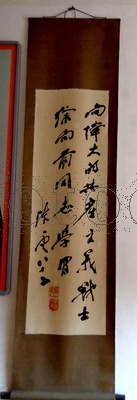 向伟大的共产主义战士
徐向前同志学习
陈云八八